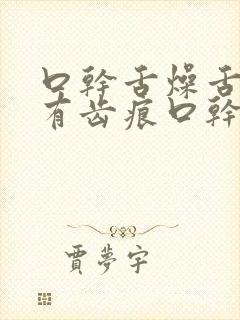 口幹舌燥舌
有齿痕口幹
賈夢宇